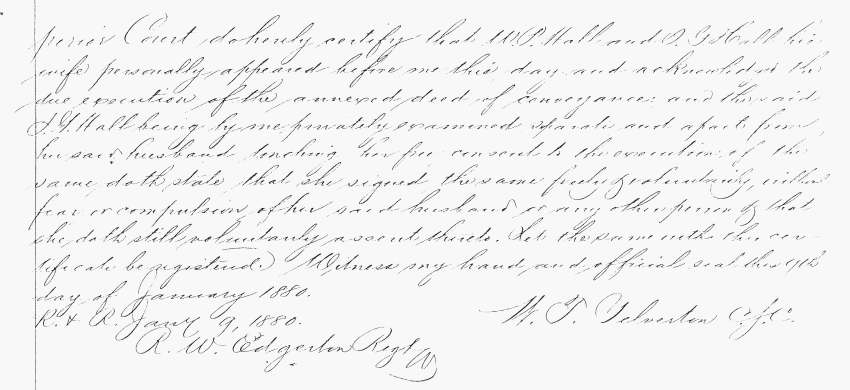 perior Court, do hereby certify that W.P. Hall and S. Y. Hall his
wife personally appeared before me this day and acknowledged the
due execution of the annexed deed of conveyance: and the said
S. Y. Hall being by me privately examined separate and apart from
her said husband touching her free consent to the execution of the
same, doth state that she signed the same freely & voluntarily, without
fear or compulsion of her said husband or any other person & that
she doth still voluntarily assent thereto. Let the same with this cer-
tificate be registered. Witness my hand and official seal this 9th
day of January 1880.
W. T. Yelverton C.S.C.
R. & R. Jany 9, 1880.
R. W. Edgerton Regt